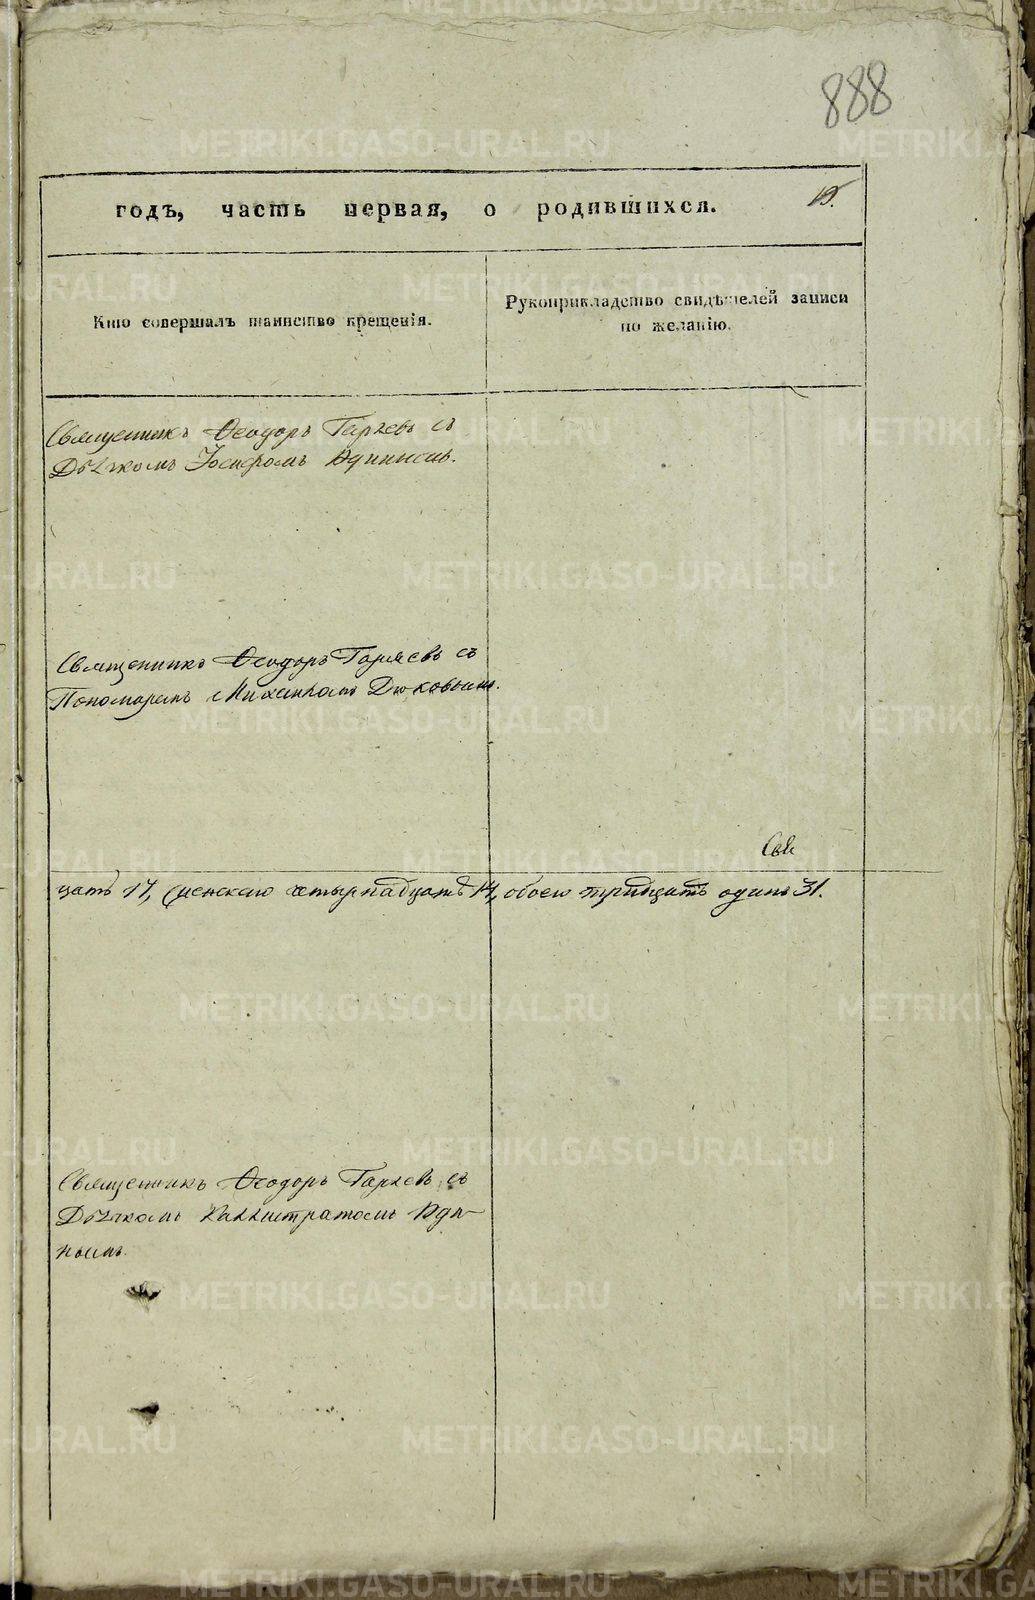 888
годъ, часть первая, о родившихся.
Кто совершалъ таинство крещенія.
Рукоприкладство свидѣтелей записи
по желанію.
Священникъ Ѳеодоръ Гаряевъ съ
Дьячкомъ
Священникъ Ѳеодоръ Гаряевъ съ
Пономаремъ Михаиломъ Дюковымъ.
Свя
цать 17, женскаго четырнадцать 14, обоего тритцать одинъ 31.
Священникъ Ѳеодоръ Гаряевъ съ
Дьячкомъ Каллистратомъ Юди-
нымъ.
METRIKI.GASO-URAL.RU